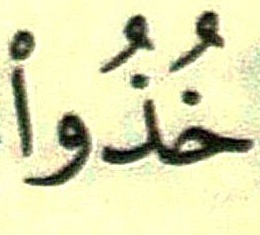 خُذُواْ